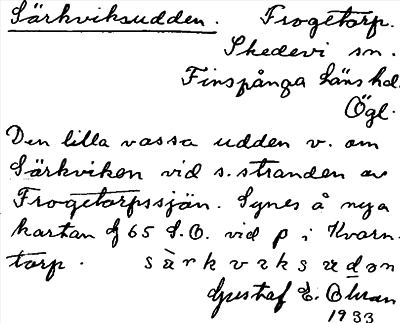 Särkviksudden. Frogetorp.
Skedevi sn.
Finspånga läns hd.
Ögl.
Den lilla vassa udden v. om
Särkviken vid s. stranden av
Frogetorpssjön. Synes å nya
kartan f 65 S.O. vid p i Kvarn-
torp. särkvɩksudən
Gustaf E. Öhman
1933